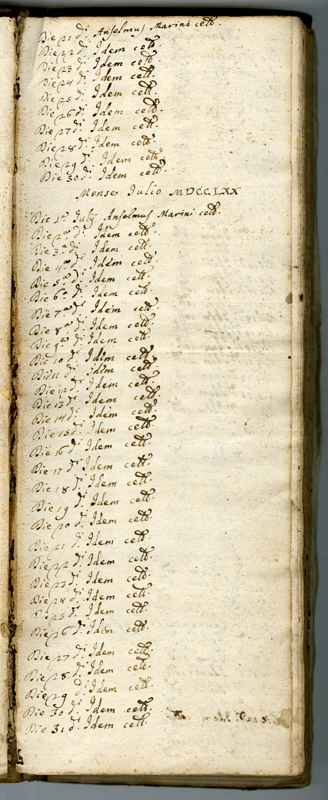 Die 21 dí. Anselmus Marini celb.
Die 22 dí. Idem celb.
Die 23 dí. Idem celb.
Die 24 dí. Idem celb.
Die 25 dí. Idem celb.
Die 26 dí. Idem celb.
Die 27 dí. Idem celb.
Die 28 dí. Idem celb.
Die 29 dí. Idem celb.
Die 30 dí. Idem celb.
Mense Julio MDCCLXX
Die 1ª Julij Anselmus Marini celb.
Die 2ª dí. Idem celb.
Die 3ª dí. Idem celb.
Die 4ª dí. Idem celb.
Die 5ª dí. Idem celb.
Die 6ª dí. Idem celb.
Die 7ª dí. Idem celb.
Die 8ª dí. Idem celb.
Die 9ª dí. Idem celb.
Die 10 dí. Idem celb.
Die 11 dí. Idem celb.
Die 12 dí. Idem celb.
Die 13 dí. Idem celb.
Die 14 dí. Idem celb.
Die 15 dí. Idem celb.
Die 16 dí. Idem celb.
Die 17 dí. Idem celb.
Die 18 dí. Idem celb.
Die 19 dí. Idem celb.
Die 20 dí. Idem celb.
Die 21 dí. Idem celb.
Die 22 dí. Idem celb.
Die 23 dí. Idem celb.
Die 24 dí. Idem celb.
Die 25 dí. Idem celb.
Die 26 dí. Idem celb.
Die 27 dí. Idem celb.
Die 28 dí. Idem celb.
Die 29 dí. Idem celb.
Die 30 dí. Idem celb.
Die 31 dí. Idem celb.